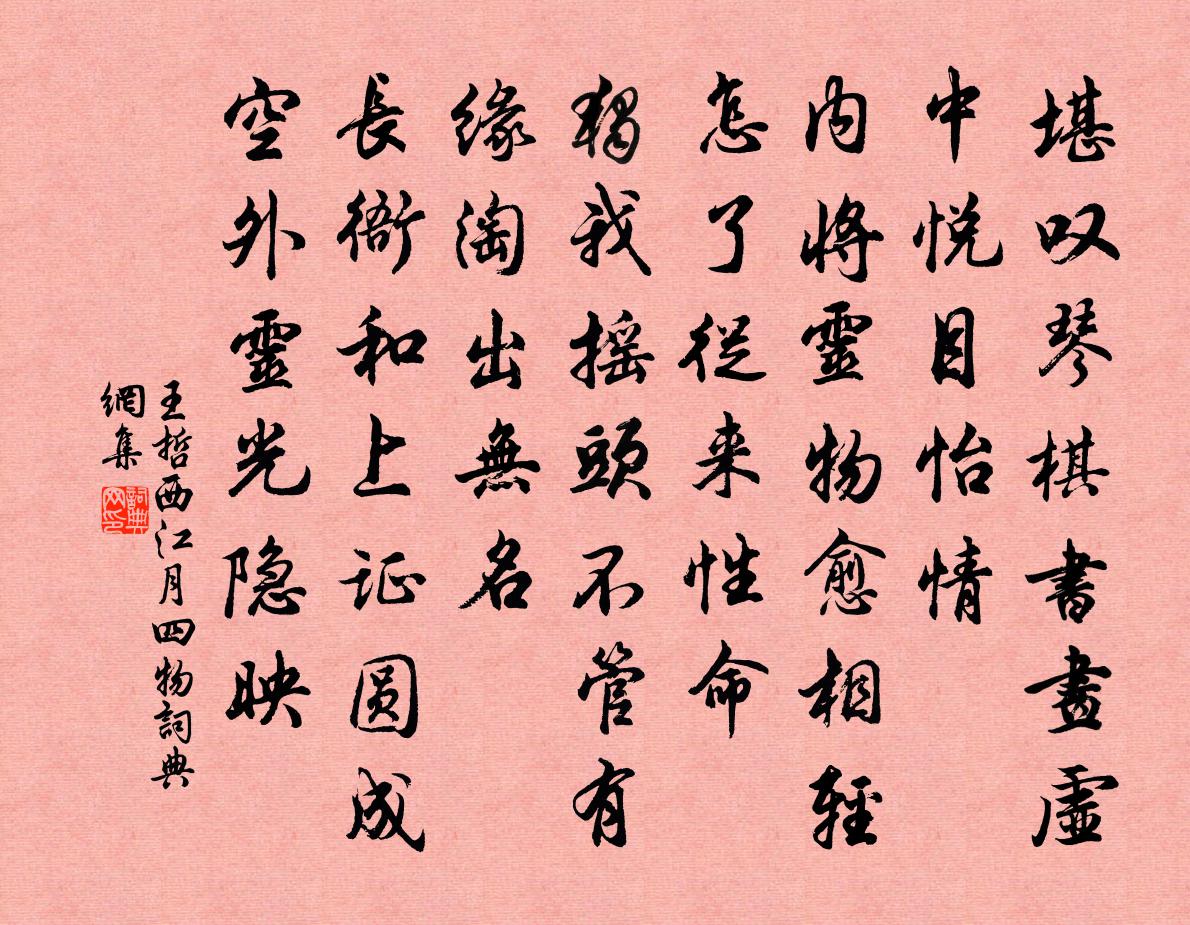 堪叹琴棋書畫虛
中悦目怡情
内將靈物愈相輕
怎了從来性命
獨我摇頭不管有
緣淘出無名
長衙和上证圆成
空外靈光隐映
王哲西江月四物詞典
網集
詞典
网印